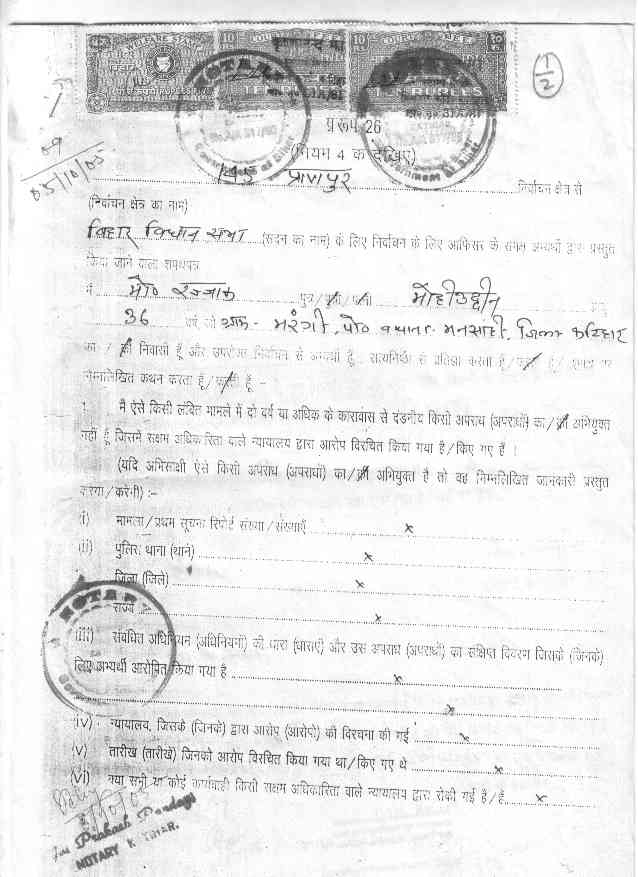 WELFARE STAMP
COURT FEE
COURT FEE
TEN RUPEES
NOTARY
NOTARY
1/2
प्ररूप 26
(नियम 4 क देखिए)
09
05/10/05
145 प्राणपुर निर्वाचन क्षेत्र से
(निर्वाचन क्षेत्र का नाम)
बिहार विधान सभा (सदन का नाम) के लिए निर्वाचन के लिए आफिसर के समक्ष अभ्यर्थी द्वारा प्रस्तुत
किया जाने वाला शपथपत्र
मैं मो० रज्जाक पुत्र/पुत्री/पत्नी मोहीउद्दीन आयु
36 वर्ष, जो ग्राम- मरंगी, पो० मनसाही, जिला कटिहार
का / की निवासी हूँ और उपरोक्त निर्वाचन से अभ्यर्थी हूँ, सत्यनिष्ठा से प्रतिज्ञा करता हूँ/करती हूँ/शपथ पर
निम्नलिखित कथन करता हूँ/करती हूँ :-
1 मैं ऐसे किसी लंबित मामले में दो वर्ष या अधिक के कारावास से दंडनीय किसी अपराध (अपराधों) का/की अभियुक्त
नहीं हूँ जिसमें सक्षम अधिकारिता वाले न्यायालय द्वारा आरोप विरचित किया गया है/किए गए हैं ।
(यदि अभिसाक्षी ऐसे किसी अपराध (अपराधों) का/की अभियुक्त है तो वह निम्नलिखित जानकारी प्रस्तुत
करेगा/करेगी) :-
(i) मामला/प्रथम सूचना रिपोर्ट संख्या/संख्याएँ x
(ii) पुलिस थाना (थाने) x
जिला (जिले) x
राज्य x
(iii) संबंधित अधिनियम (अधिनियमों) की धारा (धाराएँ) और उस अपराध (अपराधों) का संक्षिप्त विवरण जिसके (जिनके)
लिए अभ्यर्थी आरोपित किया गया है x
x
(iv) न्यायालय, जिसके (जिनके) द्वारा आरोप (आरोपों) की विरचना की गई x
(v) तारीख (तारीखें) जिनको आरोप विरचित किया गया था/किए गए थे x
(vi) क्या सभी या कोई कार्यवाही किसी सक्षम अधिकारिता वाले न्यायालय द्वारा रोकी गई है/हैं x
NOTARY
Jai Prakash Pandey
NOTARY KATIHAR.